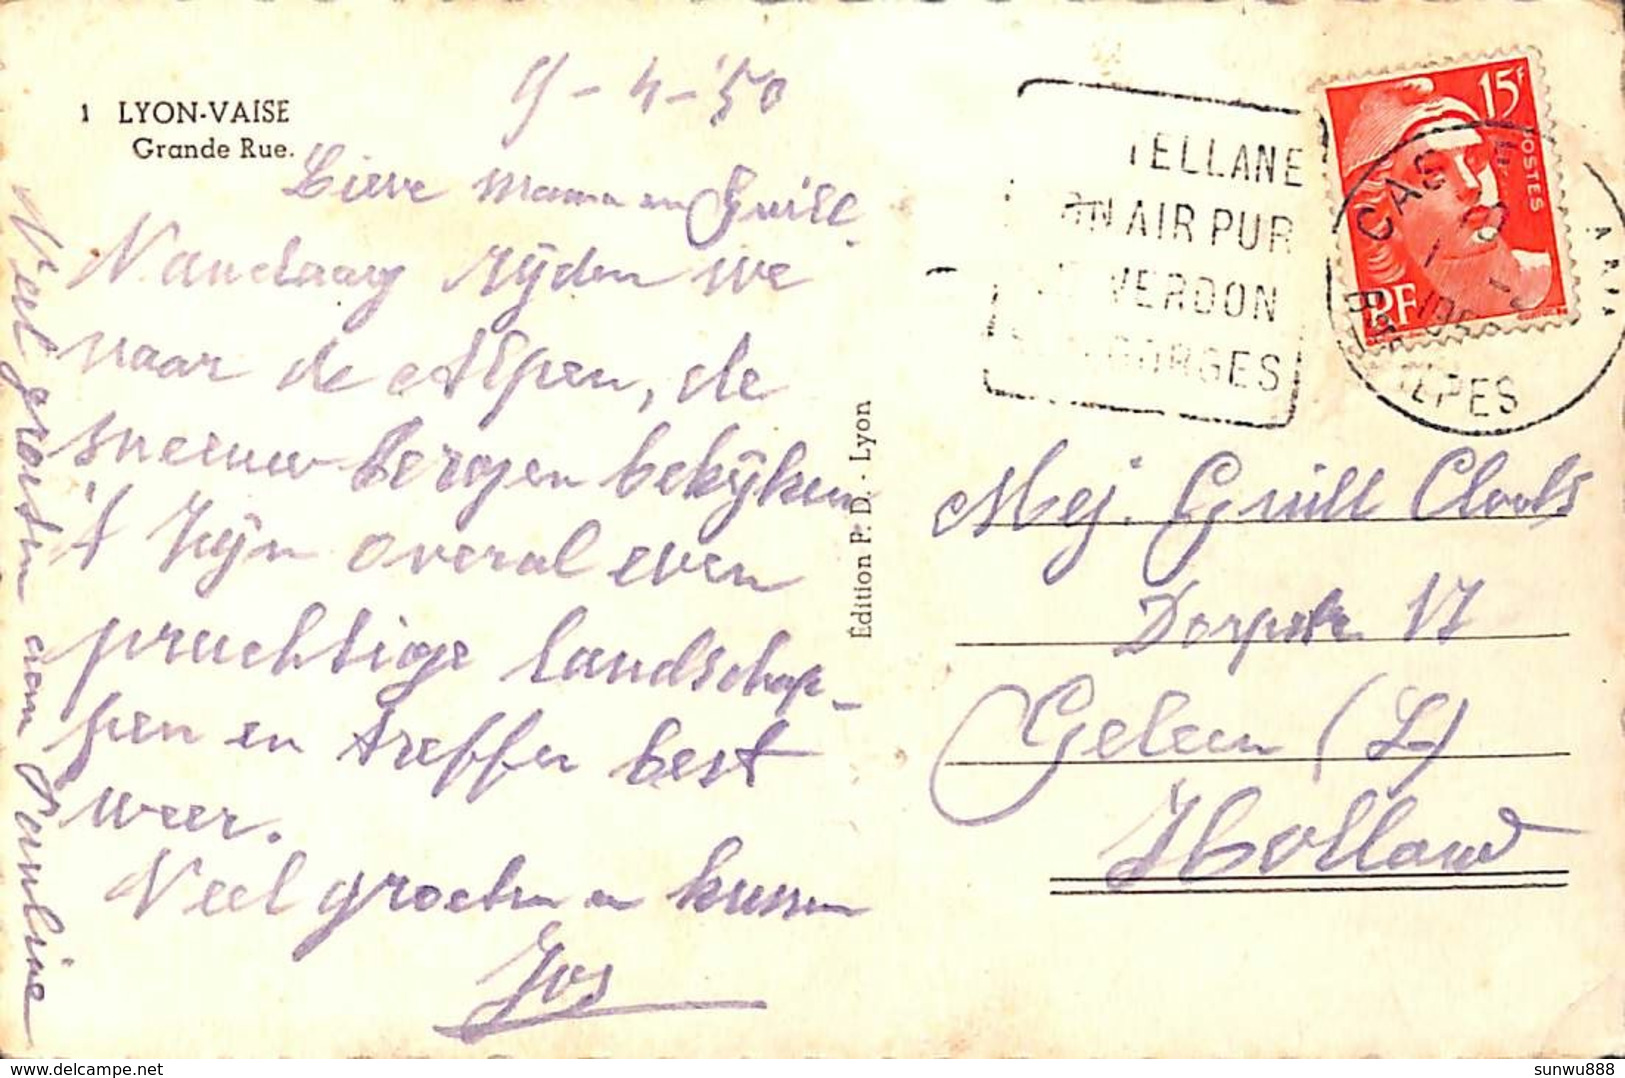 1 LYON-VAISE
Grande Rue.
9-4-'50
Lieve mama en Guill.
Vandaag rijden we
naar de Alpen, de
sneeuw bergen bekijken
't Zijn overal even
prachtige landschap-
pen en treffen best
weer.
Veel groeten en kussen
Jos
Veel groeten van Pauline
Édition P. D. - Lyon
TELLANE
ON AIR PUR
VERDON
GORGES
CAS
ALPES
15F
POSTES
RF
Mej. Guill Cloots
Dorpstr. 17
Geleen (L)
Holland
delcampe.net
sunwu888